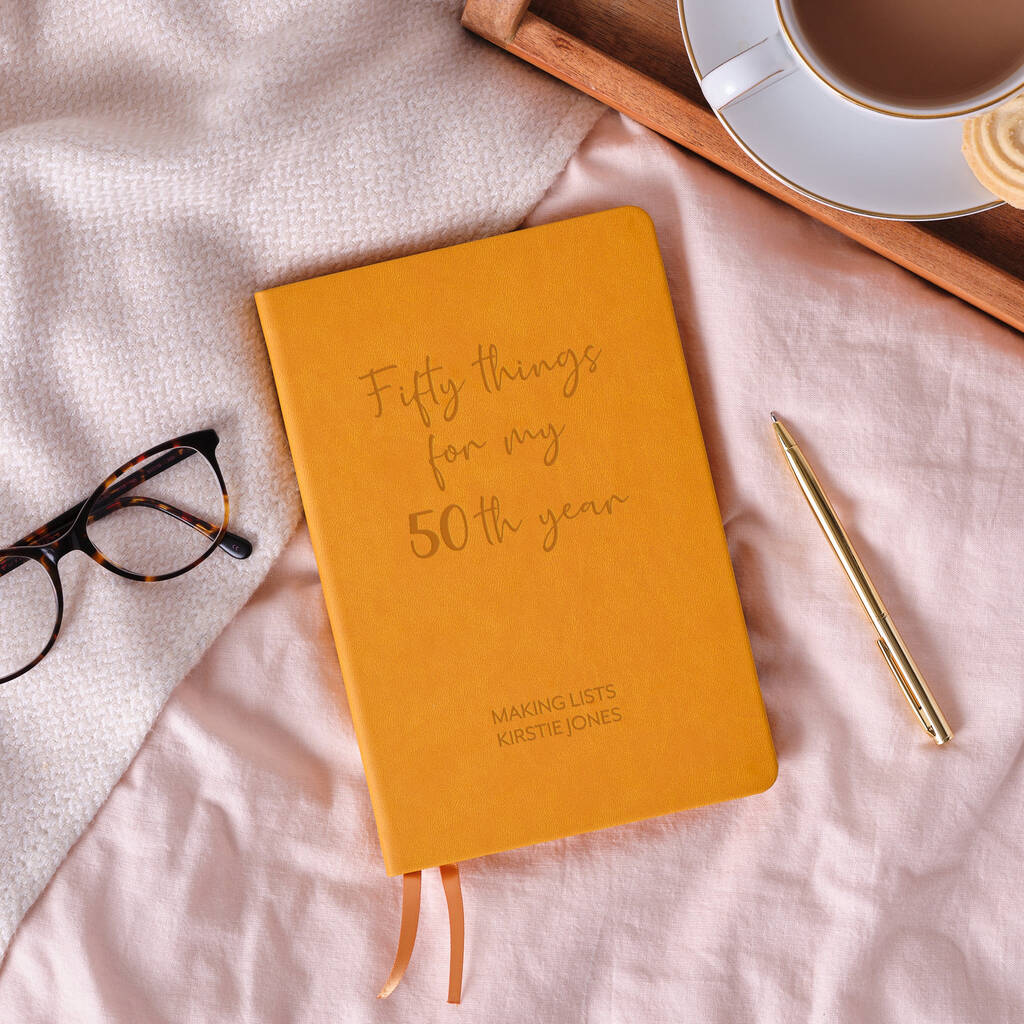 Fifty things
for my
50th year
MAKING LISTS
KIRSTIE JONES